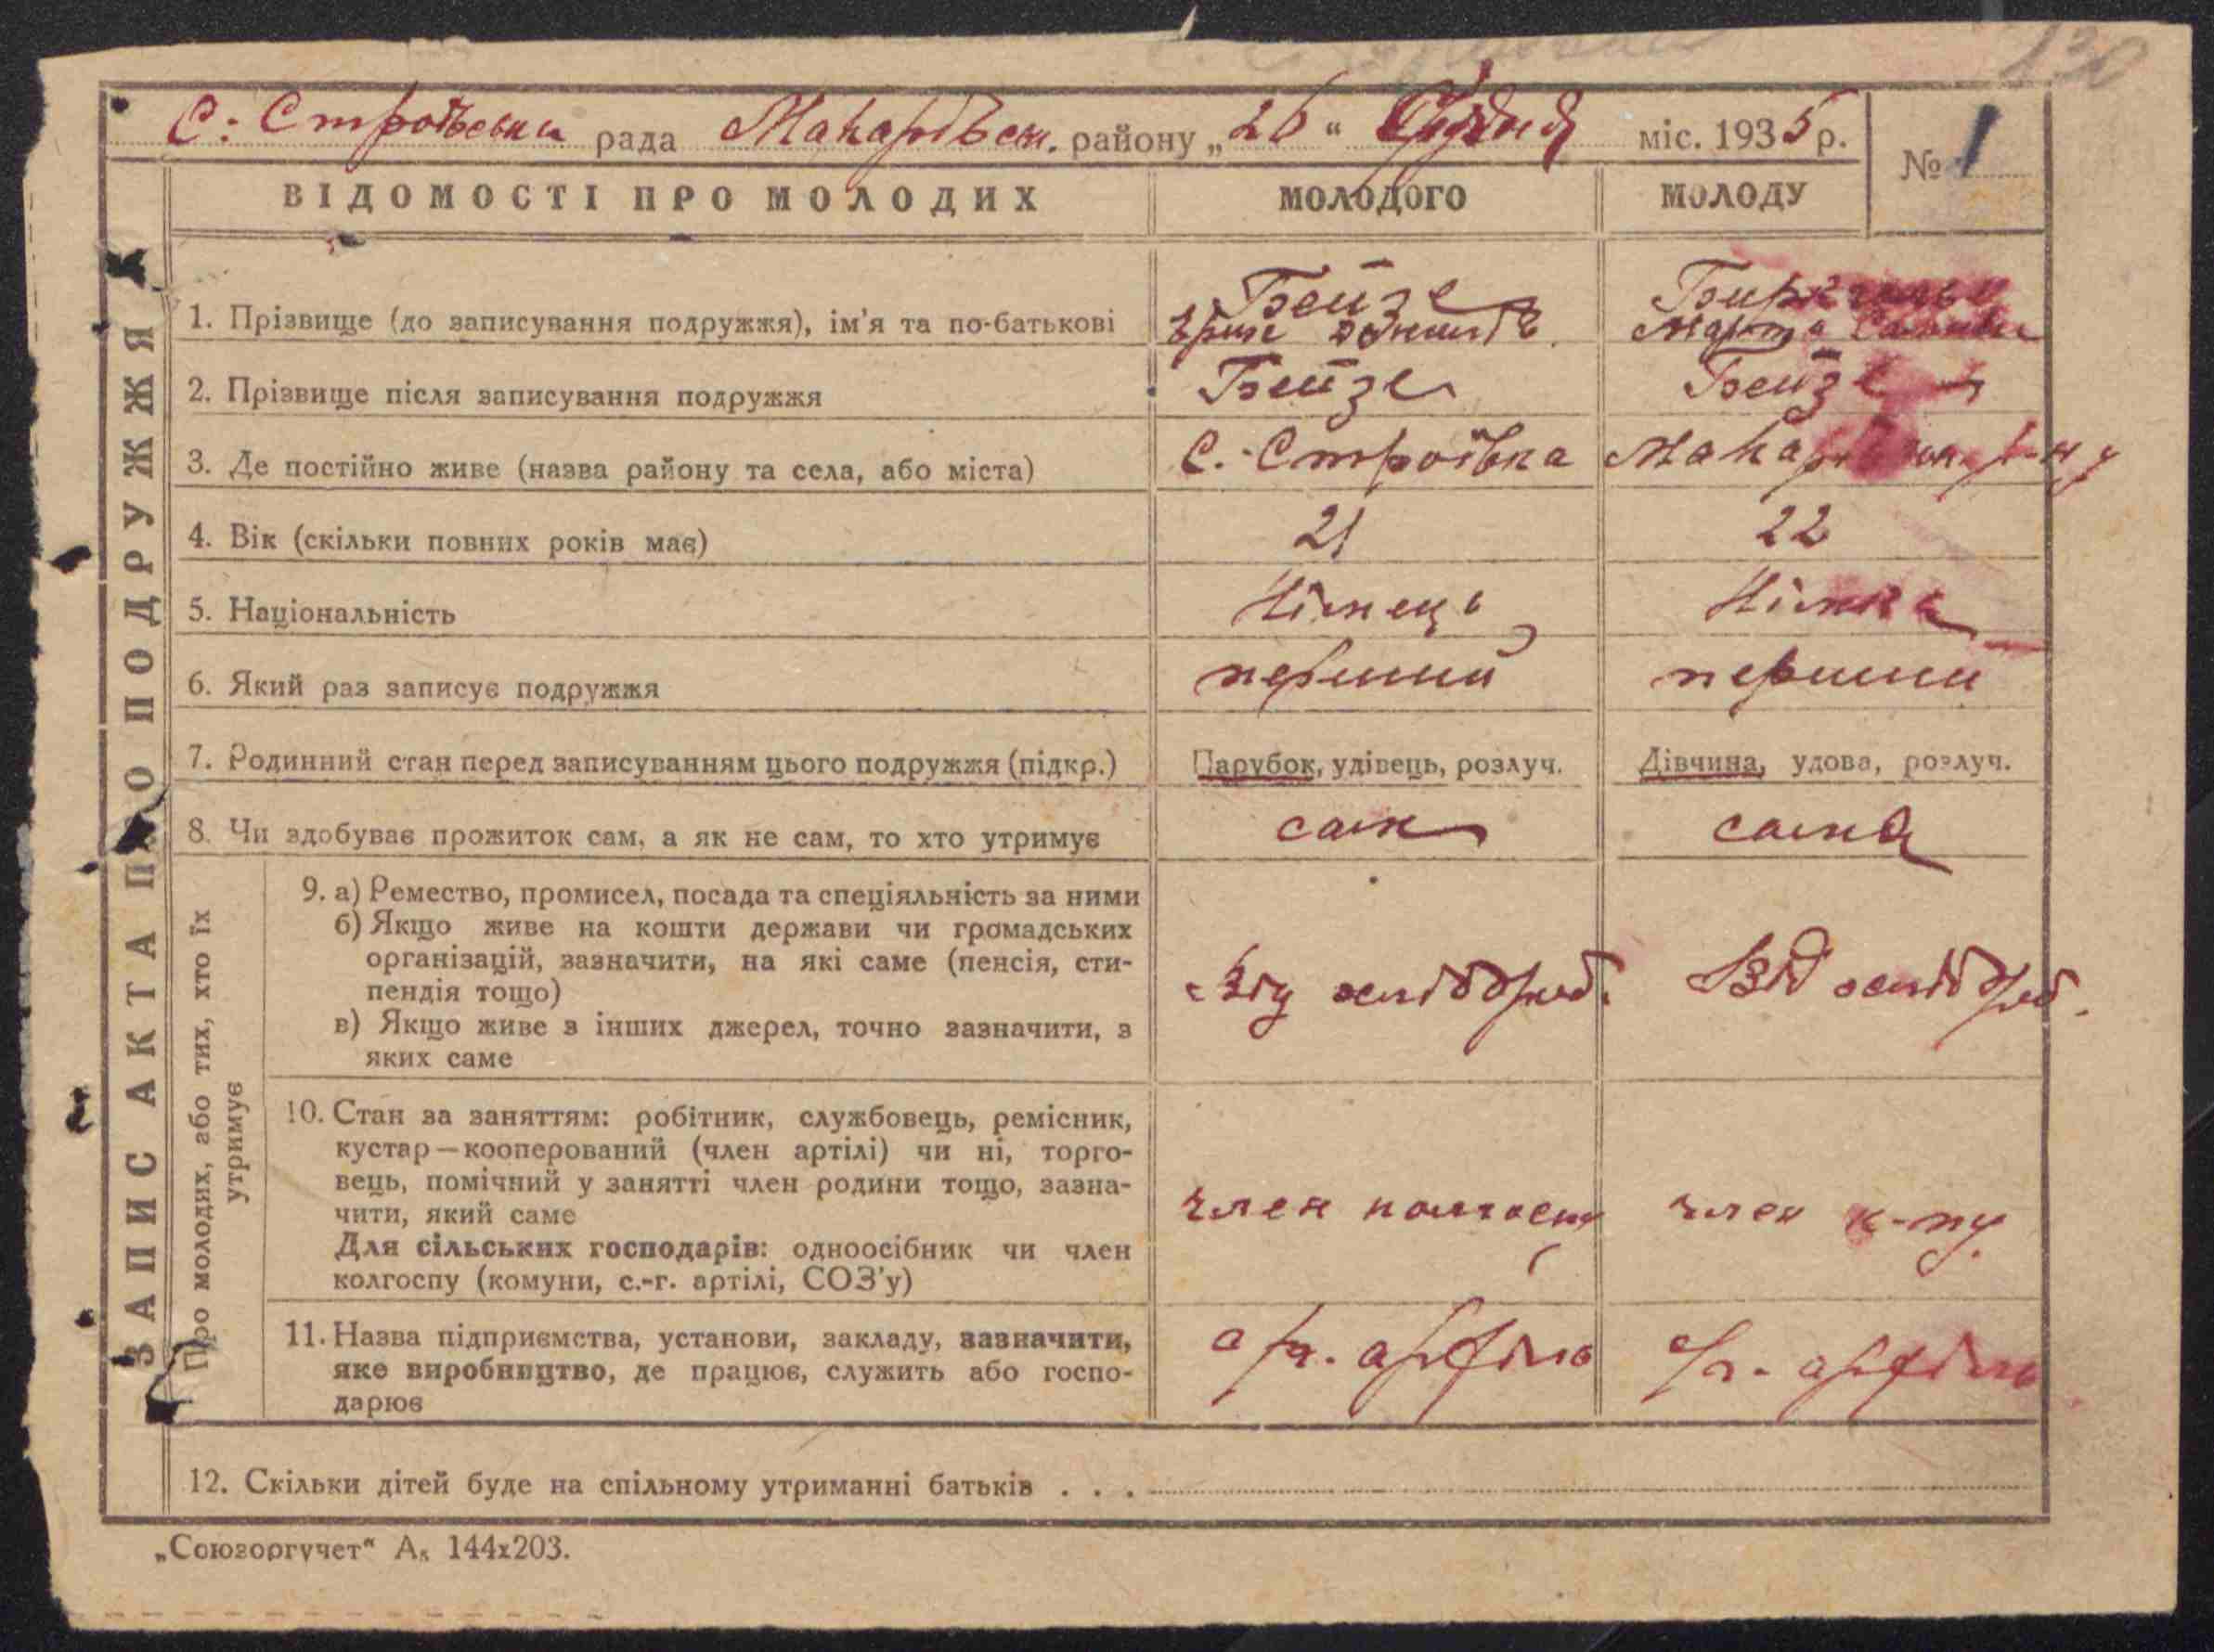 130
С. Строївська рада Макарівськ. району „26“ Грудня міс. 1935 р.
№ 1
ВІДОМОСТІ ПРО МОЛОДИХ МОЛОДОГО МОЛОДУ
ЗАПИС АКТА ПРО ПОДРУЖЖЯ
1. Прізвище (до записування подружжя), ім'я та по-батькові Бейзе
Марта
2. Прізвище після записування подружжя Бейзе Бейзе
3. Де постійно живе (назва району та села, або міста) С. Строївка Макарівськ. р-ну
4. Вік (скільки повних років має) 21 22
5. Національність Німець Німка
6. Який раз записує подружжя перший перший
7. Родинний стан перед записуванням цього подружжя (підкр.) Парубок, удівець, розлуч. Дівчина, удова, розлуч.
8. Чи здобуває прожиток сам, а як не сам, то хто утримує сам сама
Про молодих, або тих, хто їх
утримує
9. а) Ремество, промисел, посада та спеціяльність за ними
б) Якщо живе на кошти держави чи громадських
організацій, зазначити, на які саме (пенсія, сти-
пендія тощо)
в) Якщо живе з інших джерел, точно зазначити, з
яких саме
від хлібороб. Від хлібороб.
10. Стан за заняттям: робітник, службовець, ремісник,
кустар—кооперований (член артілі) чи ні, торго-
вець, помічний у занятті член родини тощо, зазна-
чити, який саме
Для сільських господарів: одноосібник чи член
колгоспу (комуни, с.-г. артілі, СОЗ'у)
член колгоспу член к-пу
11. Назва підприємства, установи, закладу, зазначити,
яке виробництво, де працює, служить або госпо-
дарює
артіль артіль
12. Скільки дітей буде на спільному утриманні батьків . . .
„Союзоргучет“ А₅ 144х203.